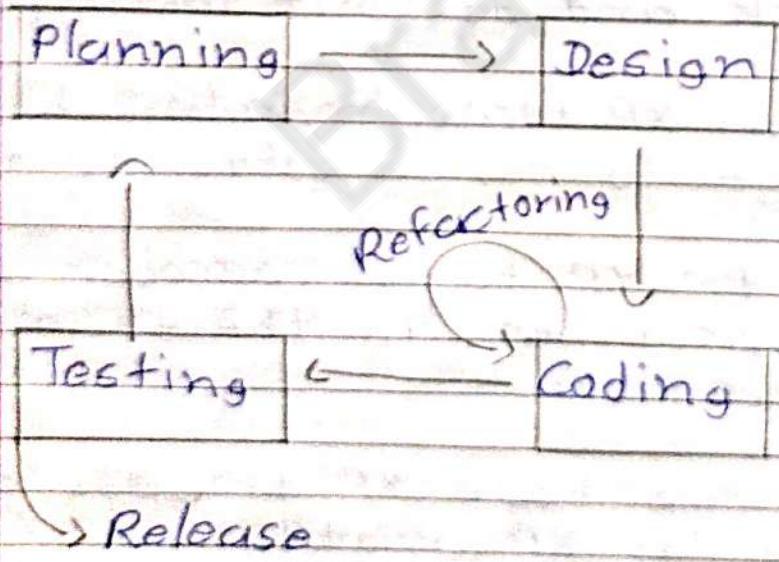 Planning Design
Refactoring
Testing Coding
Release